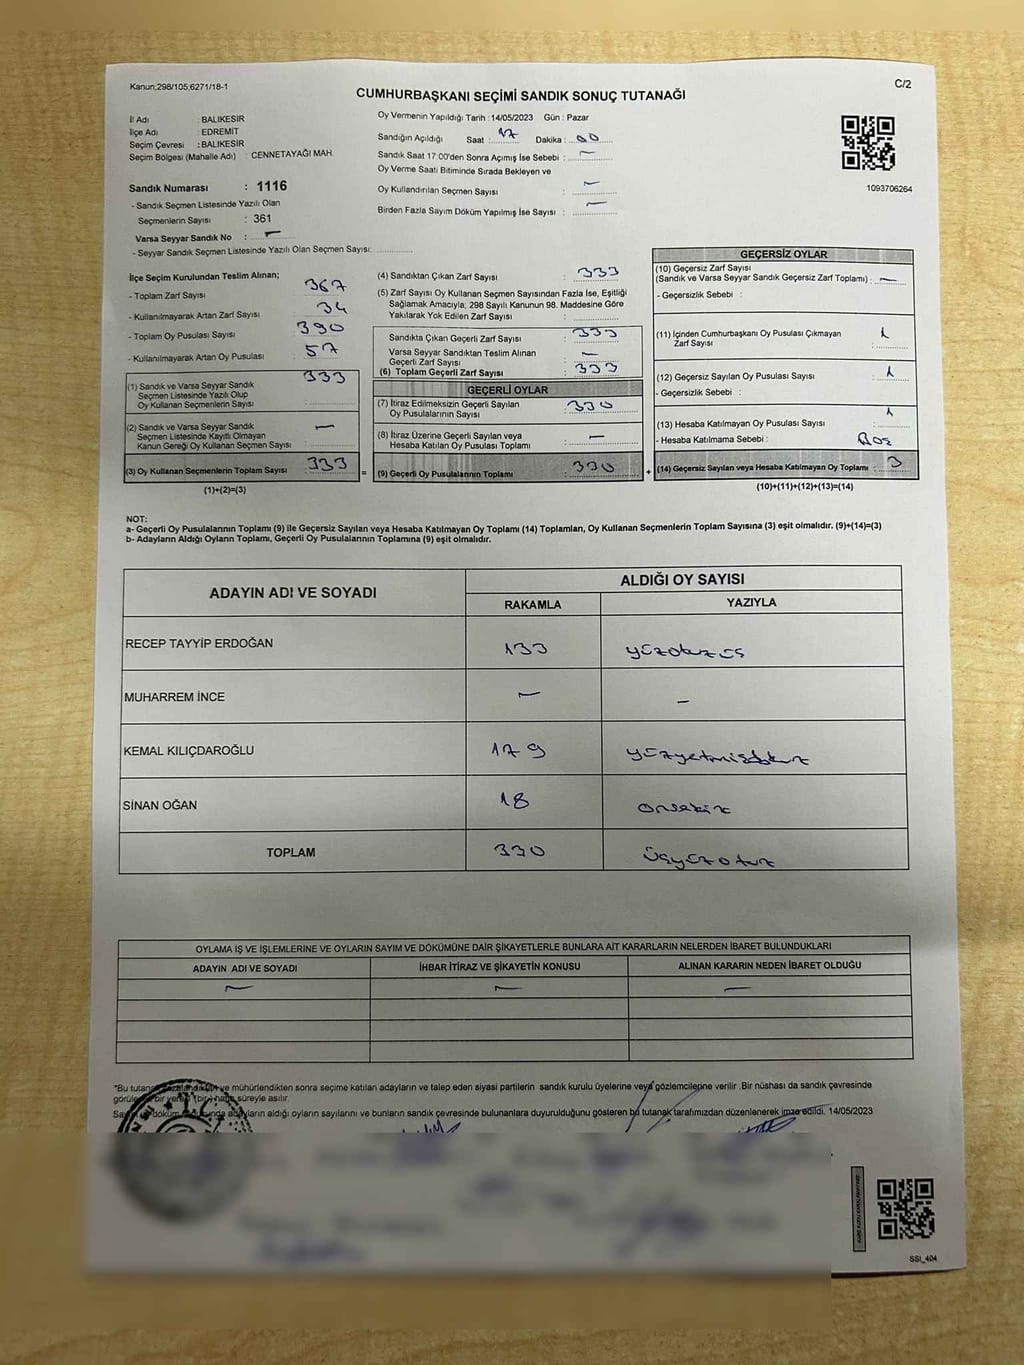 Kanun;298/105;6271/18-1
C/2
CUMHURBAŞKANI SEÇİMİ SANDIK SONUÇ TUTANAĞI
İl Adı : BALIKESİR
İlçe Adı : EDREMİT
Seçim Çevresi : BALIKESİR
Seçim Bölgesi (Mahalle Adı) : CENNETAYAĞI MAH.
Sandık Numarası : 1116
- Sandık Seçmen Listesinde Yazılı Olan
Seçmenlerin Sayısı : 361
Varsa Seyyar Sandık No : —
- Seyyar Sandık Seçmen Listesinde Yazılı Olan Seçmen Sayısı: ............
Oy Vermenin Yapıldığı Tarih : 14/05/2023 Gün : Pazar
Sandığın Açıldığı Saat : 17 Dakika : 00
Sandık Saat 17:00'den Sonra Açımış İse Sebebi : —
Oy Verme Saati Bitiminde Sırada Bekleyen ve
Oy Kullandırılan Seçmen Sayısı : —
Birden Fazla Sayım Döküm Yapılmış İse Sayısı : —
1093706264
İlçe Seçim Kurulundan Teslim Alınan;
- Toplam Zarf Sayısı : 367
- Kullanılmayarak Artan Zarf Sayısı : 34
- Toplam Oy Pusulası Sayısı : 390
- Kullanılmayarak Artan Oy Pusulası : 57
(1) Sandık ve Varsa Seyyar Sandık 333
Seçmen Listesinde Yazılı Olup
Oy Kullanan Seçmenlerin Sayısı :
(2) Sandık ve Varsa Seyyar Sandık —
Seçmen Listesinde Kayıtlı Olmayan
Kanun Gereği Oy Kullanan Seçmen Sayısı :
(3) Oy Kullanan Seçmenlerin Toplam Sayısı : 333 =
(1)+(2)=(3)
(4) Sandıktan Çıkan Zarf Sayısı : 333
(5) Zarf Sayısı Oy Kullanan Seçmen Sayısından Fazla İse, Eşitliği
Sağlamak Amacıyla; 298 Sayılı Kanunun 98. Maddesine Göre
Yakılarak Yok Edilen Zarf Sayısı :
Sandıkta Çıkan Geçerli Zarf Sayısı : 333
Varsa Seyyar Sandıktan Teslim Alınan
Geçerli Zarf Sayısı : —
(6) Toplam Geçerli Zarf Sayısı : 333
GEÇERLİ OYLAR
(7) İtiraz Edilmeksizin Geçerli Sayılan
Oy Pusulalarının Sayısı : 330
(8) İtiraz Üzerine Geçerli Sayılan veya
Hesaba Katılan Oy Pusulası Toplamı : —
(9) Geçerli Oy Pusulalarının Toplamı : 330 +
GEÇERSİZ OYLAR
(10) Geçersiz Zarf Sayısı
(Sandık ve Varsa Seyyar Sandık Geçersiz Zarf Toplamı) : —
- Geçersizlik Sebebi :
(11) İçinden Cumhurbaşkanı Oy Pusulası Çıkmayan 1
Zarf Sayısı :
(12) Geçersiz Sayılan Oy Pusulası Sayısı : 1
- Geçersizlik Sebebi :
(13) Hesaba Katılmayan Oy Pusulası Sayısı : 1
- Hesaba Katılmama Sebebi : Boş
(14) Geçersiz Sayılan veya Hesaba Katılmayan Oy Toplamı : 3
(10)+(11)+(12)+(13)=(14)
NOT:
a- Geçerli Oy Pusulalarının Toplamı (9) ile Geçersiz Sayılan veya Hesaba Katılmayan Oy Toplamı (14) Toplamları, Oy Kullanan Seçmenlerin Toplam Sayısına (3) eşit olmalıdır. (9)+(14)=(3)
b- Adayların Aldığı Oyların Toplamı, Geçerli Oy Pusulalarının Toplamına (9) eşit olmalıdır.
ADAYIN ADI VE SOYADI ALDIĞI OY SAYISI
RAKAMLA YAZIYLA
RECEP TAYYİP ERDOĞAN 133 yüzotuzüç
MUHARREM İNCE — —
KEMAL KILIÇDAROĞLU 179 yüzyetmişdokuz
SİNAN OĞAN 18 onsekiz
TOPLAM 330 üçyüzotuz
OYLAMA İŞ VE İŞLEMLERİNE VE OYLARIN SAYIM VE DÖKÜMÜNE DAİR ŞİKAYETLERLE BUNLARA AİT KARARLARIN NELERDEN İBARET BULUNDUKLARI
ADAYIN ADI VE SOYADI İHBAR İTİRAZ VE ŞİKAYETİN KONUSU ALINAN KARARIN NEDEN İBARET OLDUĞU
— — —
*Bu ve mühürlendikten sonra seçime katılan adayların ve talep eden siyasi partilerin sandık kurulu üyelerine veya gözlemcilerine verilir .Bir nüshası da sandık çevresinde
bir (bir) süreyle asılır.
aldığı oyların sayılarını ve bunların sandık çevresinde bulunanlara duyurulduğunu gösteren bu tutanak tarafımızdan düzenlenerek imza edildi. 14/05/2023
SSI_404